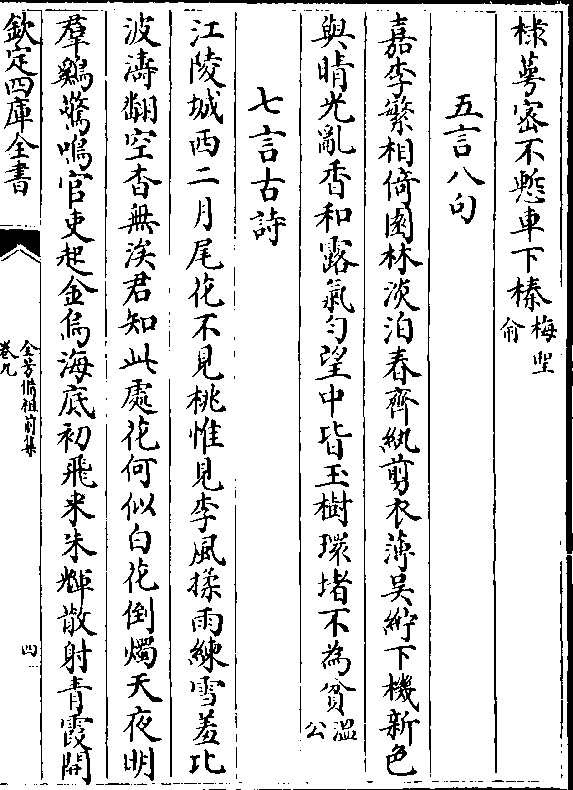 棣萼密不慙車下榛梅聖俞
五言八句
嘉李繁相倚園林淡泊春齊紈剪衣薄吳紵下機新色
與晴光亂香和露氣勻望中皆玉樹環堵不為貧溫公
七言古詩
江陵城西二月尾花不見桃惟見李風揉雨練雪羞比
波濤翻空杳無涘君知此處花何似白花倒燭天夜明
羣鷄驚鳴官吏起金烏海底初飛来朱輝散射青霞開
欽定四庫全書
全芳備祖前集
卷九
四